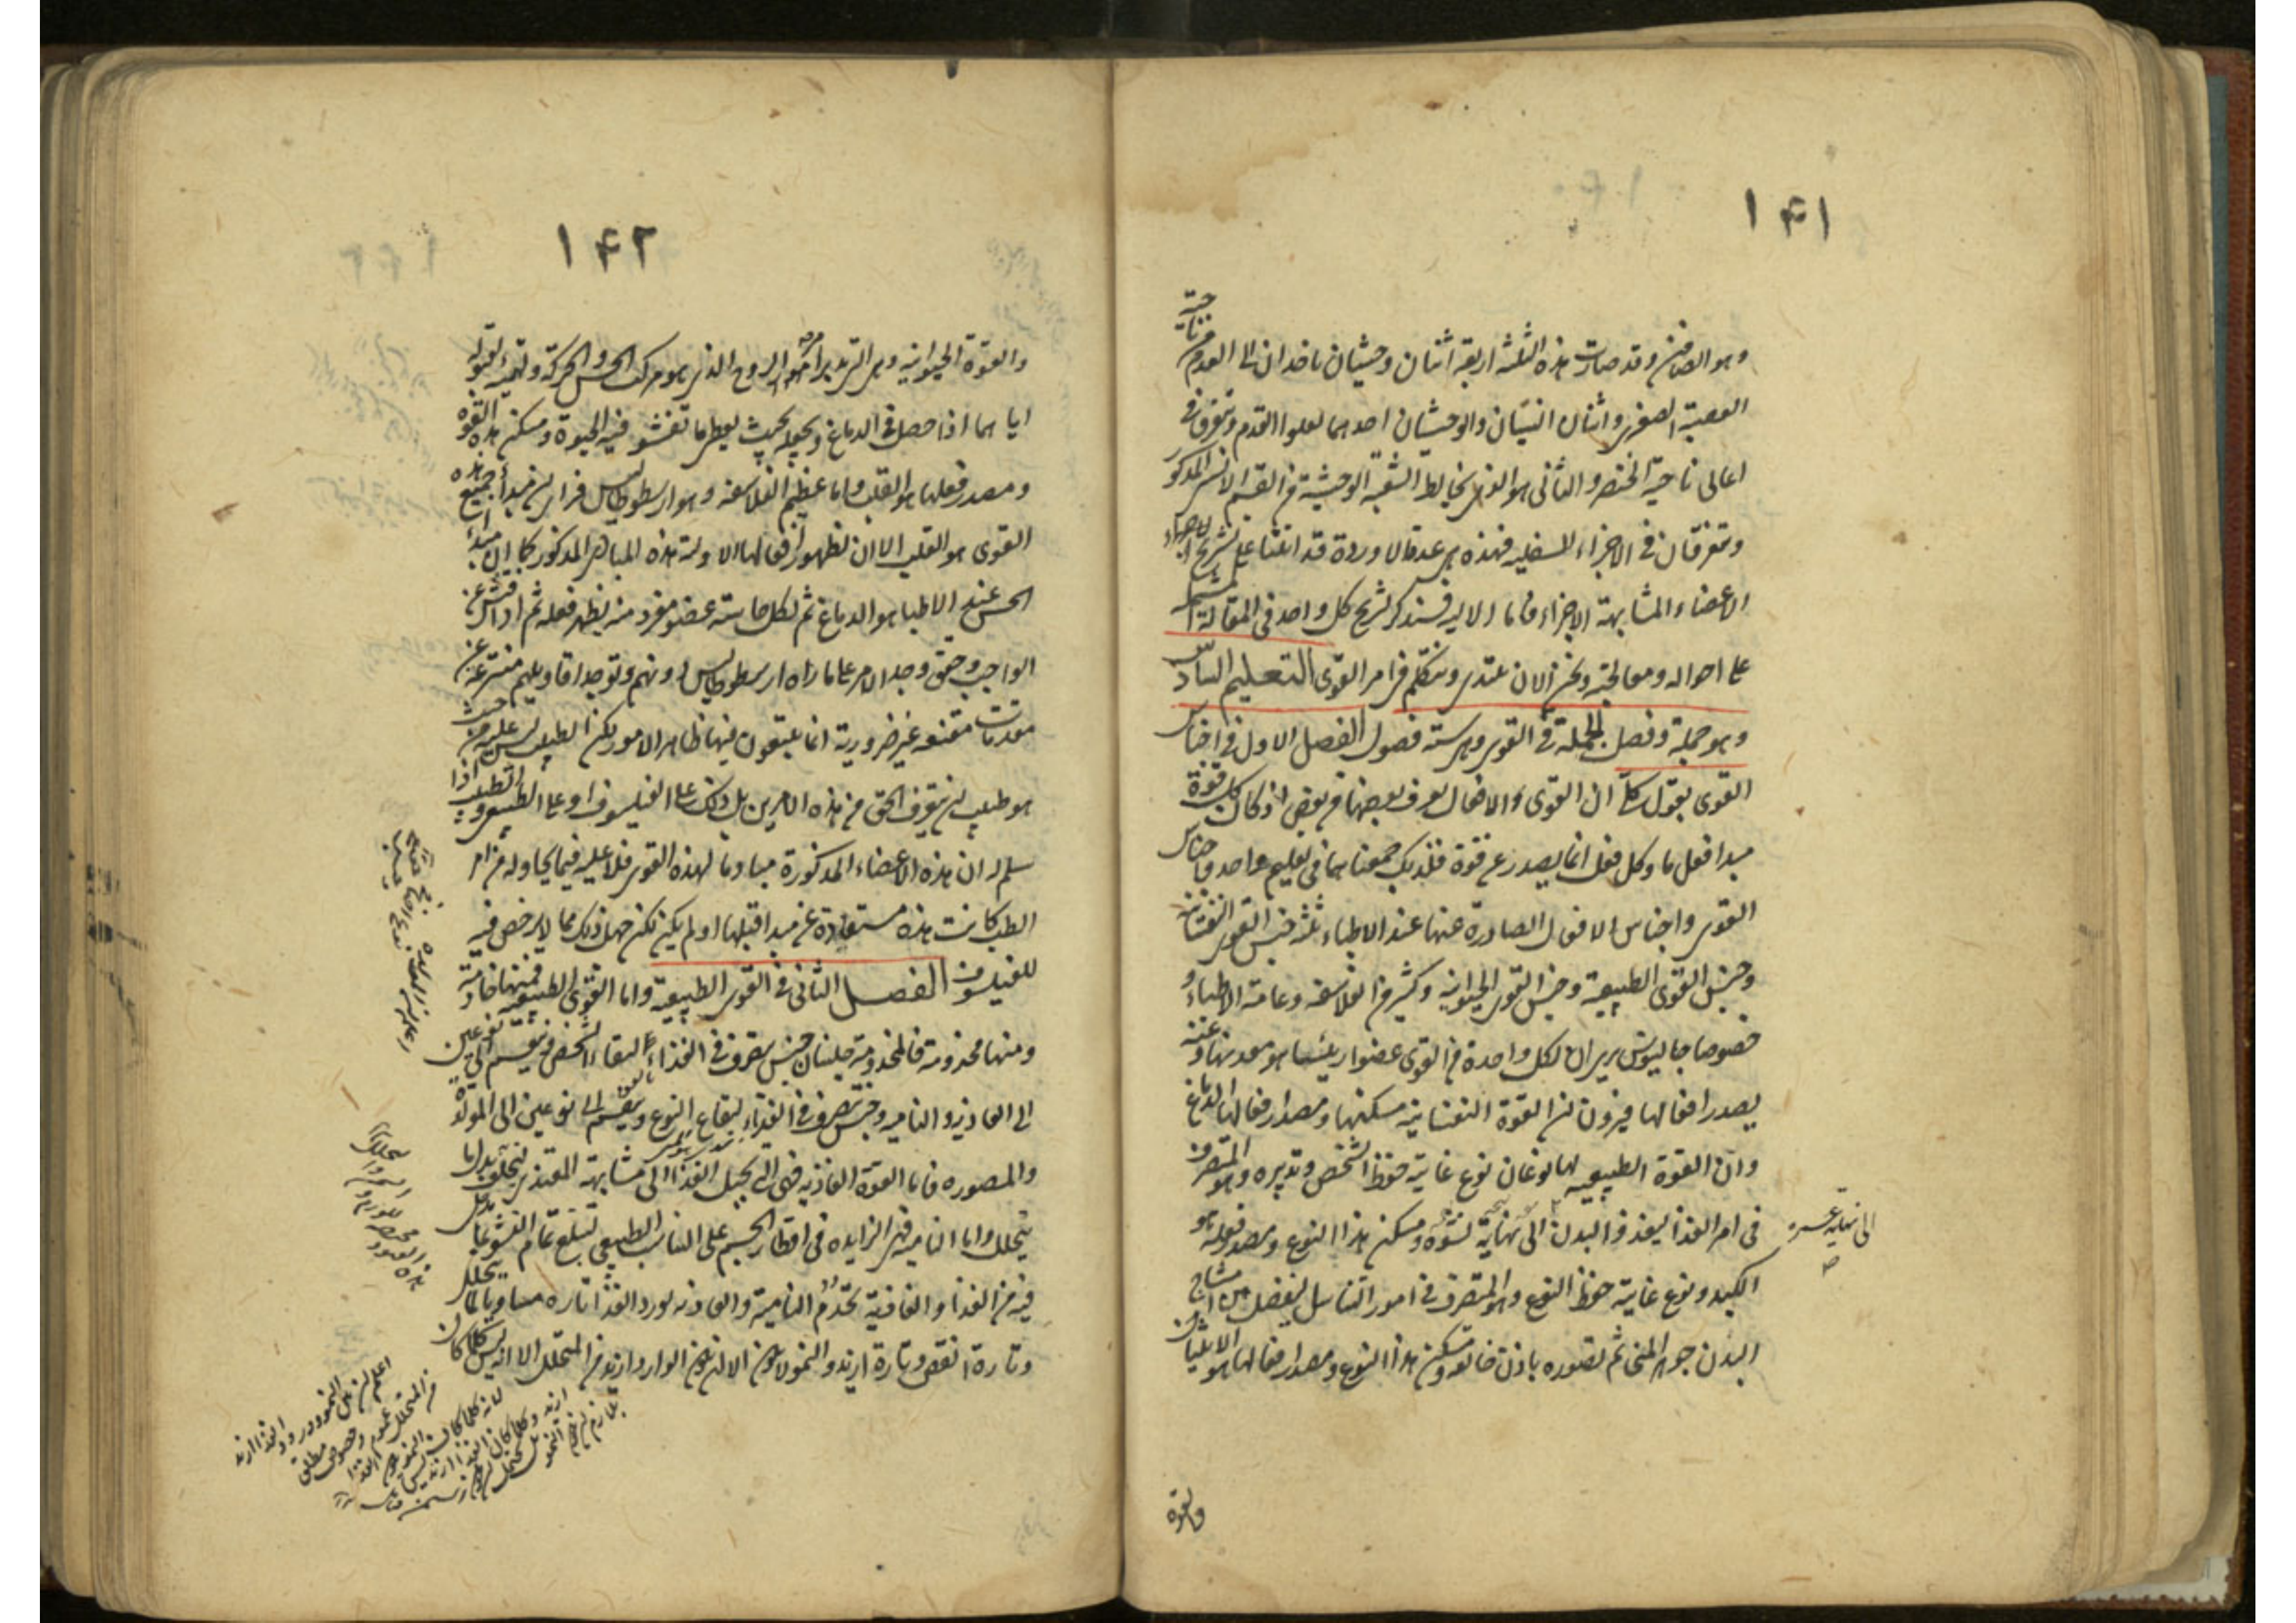 ١٤١
وهو الصافن وقد صارت هذه الثلثة اربعة اثنان وحشيان ياخذان الى القدم من ناحية
القصبة الصغرى واثنان انسيان والوحشيان احدهما يعلو القدم ويتفرق في
اعالى ناحية الخنصر والثانى هو الذى يخالط الشعبة الوحشية من القسم الانسى المذكور
ويتفرقان فى الاجزاء السفلية فهذه هى عدة الاوردة قد اتينا على تشريح
الاعضاء المتشابهة الاجزاء فاما الالية فسنذكر تشريح كل واحد فى المقالة المشتملة
على احواله ومعالجته ونحن الان نبتدى ونتكلم فى امر القوى التعليم السادس
وهو جملة وفصل الجملة فى القوى وهى ستة فصول الفصل الاول فى اجناس
القوى بقول كلى ان القوى والافعال يعرف بعضها من بعض اذ كان كل قوة
مبدا فعل ما وكل فعل انما يصدر عن قوة فلذلك جمعناهما فى تعليم واحد واجناس
القوى واجناس الافعال الصادرة عنها عند الاطباء ثلثة جنس القوى النفسانية
وجنس القوى الطبيعية وجنس القوى الحيوانية وكثير من الفلاسفة وعامة الاطباء و
خصوصا جالينوس يرى ان لكل واحدة من القوى عضوا رئيسا هو معدنها وعنه
يصدر افعالها فيرون ان القوة النفسانية مسكنها ومصدر افعالها الدماغ
وان القوة الطبيعية لها نوعان نوع غايته حفظ الشخص وتدبيره وهو المتصرف
فى امر الغذا ليغذو البدن الى نهاية نشوه ومسكن هذا النوع ومصدر فعله هو
الكبد ونوع غايته حفظ النوع وهو المتصرف فى امور التناسل ليفصل من امشاج
البدن جوهر المنى ثم يصوره باذن خالقه ومسكن هذا النوع ومصدر افعالها هو الانثيان
والقوة
١٤٢
والقوة الحيوانية وهى التى تدبر امر الروح الذى هو مركب الحس والحركة وتهيئه لقبوله
اياهما اذا حصل فى الدماغ وتجعله بحيث يعطى ما تفشو فيه الحيوة ومسكن هذه القوة
ومصدر فعلها هو القلب واما عظيم الفلاسفة وهو ارسطوطاليس فراى ان مبدأ جميع هذه
القوى هو القلب الا ان لظهور افعالها الاولية هذه المبادى المذكورة كما ان مبدأ
الحس عند الاطبا هو الدماغ ثم لكل حاسة عضو مفرد منه يظهر فعله ثم اذا فتش عن
الواجب وحقق وجد الامر على ما راه ارسطوطاليس دونهم وتوجد اقاويلهم منتزعة عن
مقدمات مقنعة غير ضرورية انما يتبعون فيها ظاهر الامور لكن الطبيب ليس عليه من حيث
هو طبيب ان يتعرف الحق من هذه الامرين بل ذلك على الفيلسوف او على الطبيعى والطبيب اذا
سلم له ان هذه الاعضاء المذكورة مبادما لهذه القوى فلا عليه فيما يحاوله من امر
الطب كانت هذه مستفادة عن مبدا قبلها او لم يكن لكن جهل ذلك مما لا يرخص فيه
للفيلسوف الفصل الثانى فى القوى الطبيعية واما القوى الطبيعية فمنها خادمة
ومنها مخدومة فالمخدومة جنسان جنس يتصرف فى الغذاء لبقاء الشخص وينقسم الى نوعين
الى الغاذية والنامية وجنس يتصرف فى الغذاء لبقاء النوع وينقسم الى نوعين الى المولدة
والمصورة فاما القوة الغاذية فهى التى تحيل الغذا الى مشابهة المغتذى ليخلف بدل ما
يتحلل واما النامية فهى الزايدة فى اقطار الجسم على التناسب الطبيعى لتبلغ تمام النشو بما يدخل
فيه من الغذا والغاذية تخدم النامية والغاذية تورد الغذا تارة مساويا لما يتحلل
وتارة انقص وتارة ازيد والنمو لا يكون الا ان يكون الوارد ازيد من المتحلل الا انه ليس كلما كان